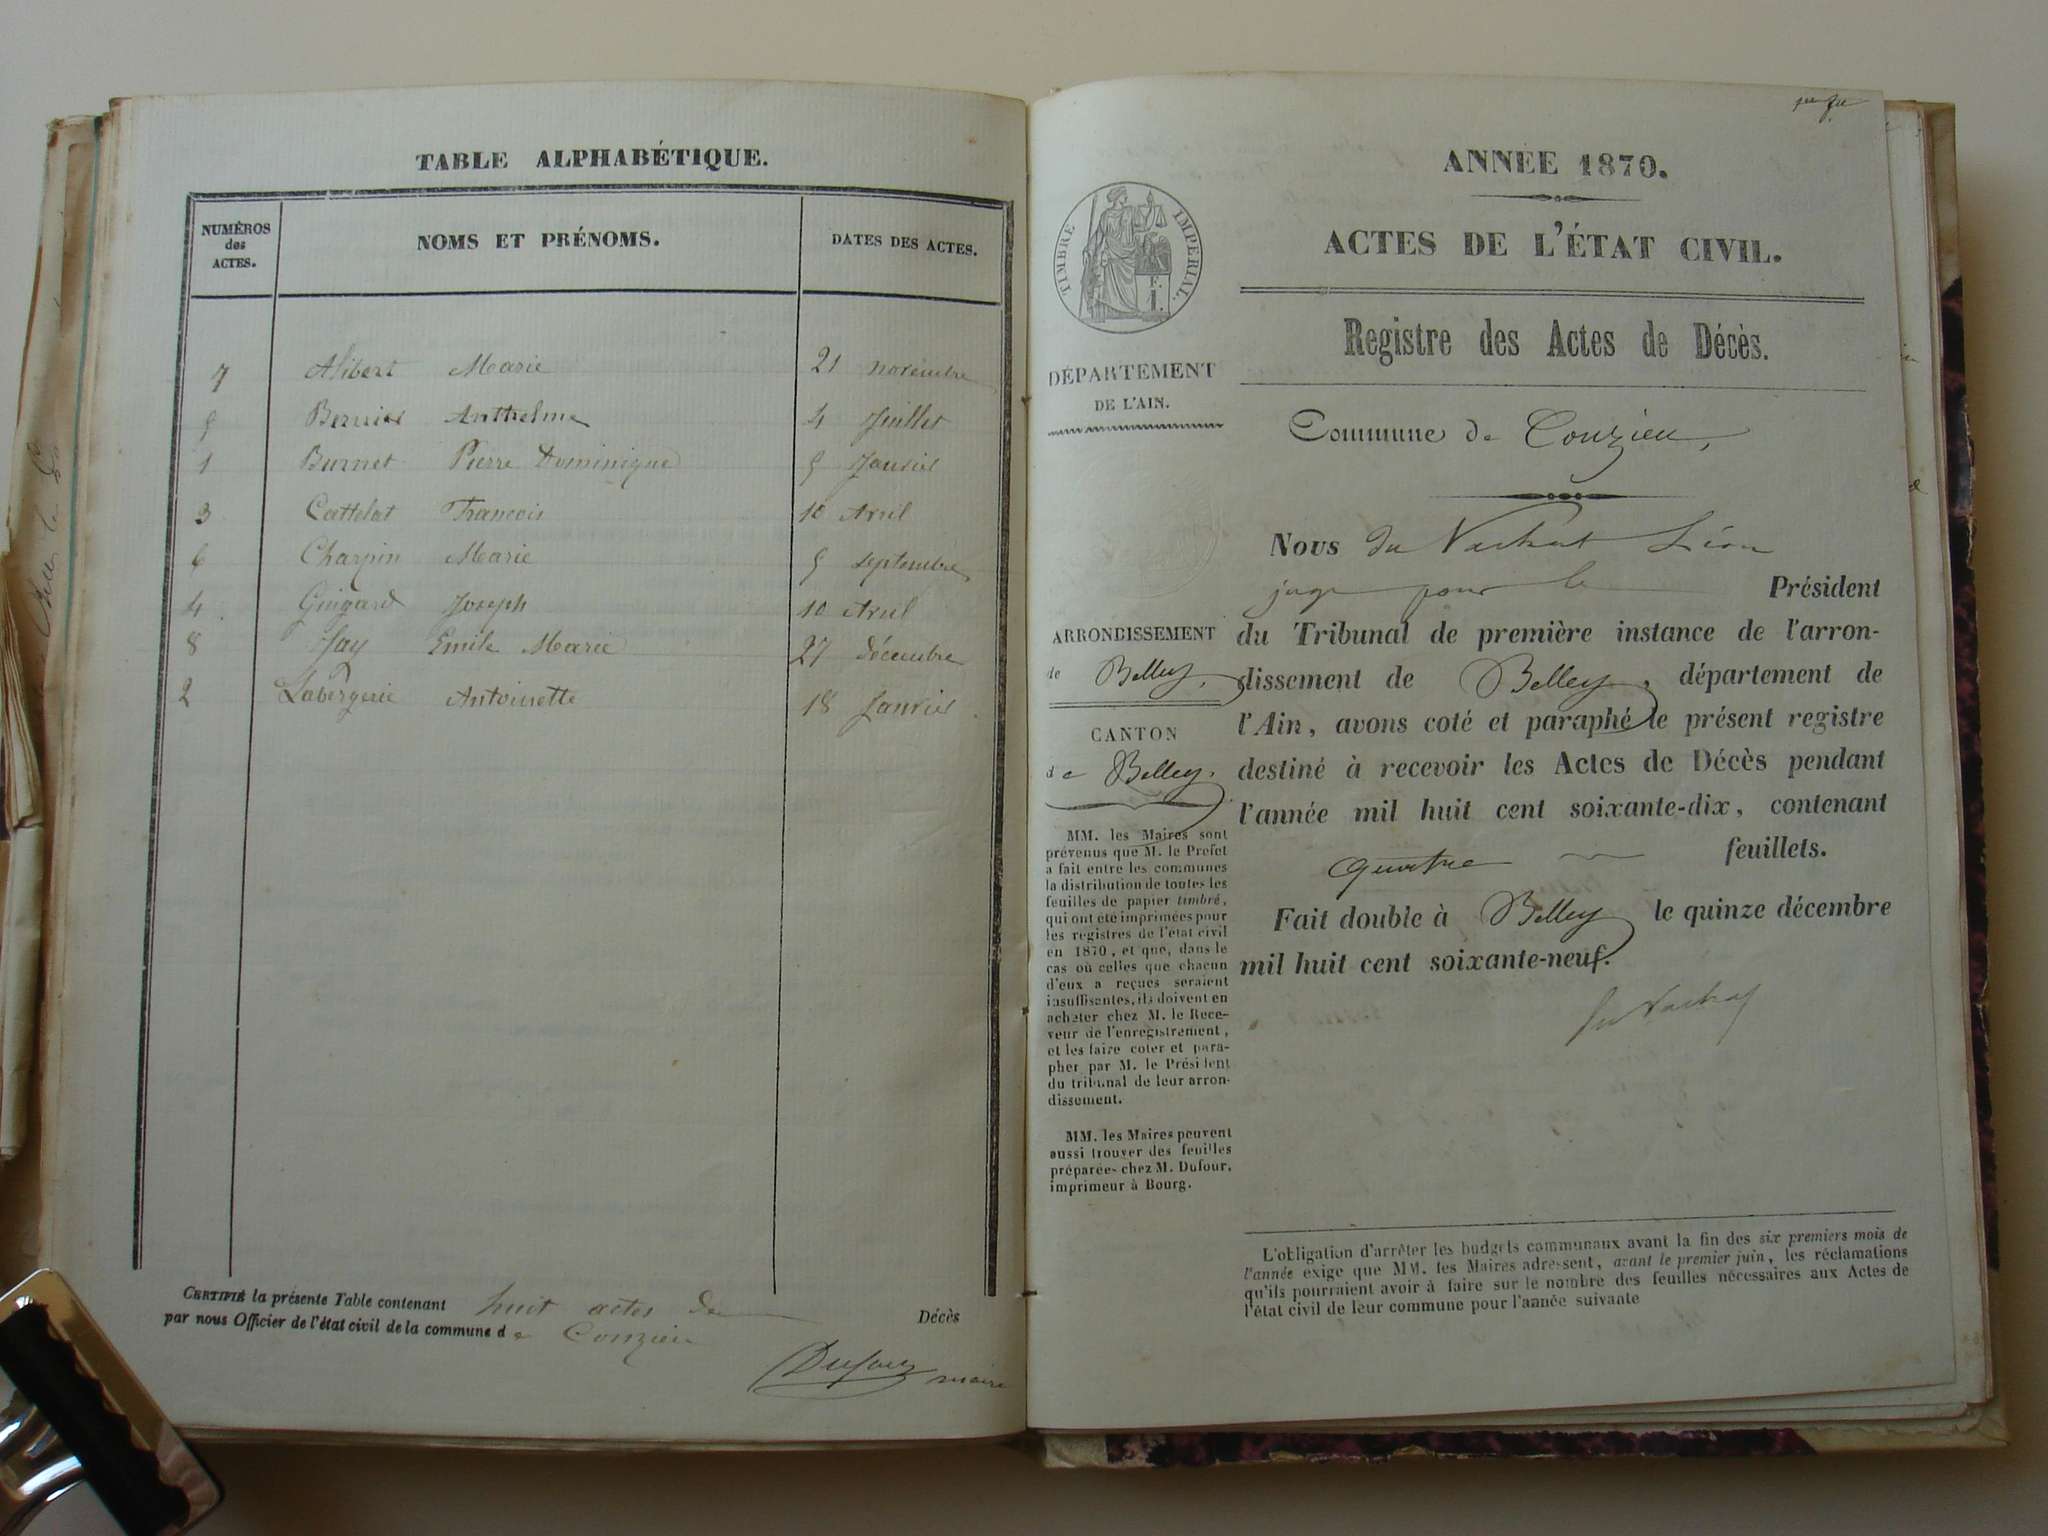 TABLE ALPHABÉTIQUE.
NUMÉROS des ACTES. NOMS ET PRÉNOMS. DATES DES ACTES.
7 Alibert Marie 21 novembre
5 Bernier Anthelme 4 Juillet
1 Burnet Pierre Dominique 5 Janvier
3 Cattelat Francois 10 Avril
6 Charpin Marie 5 septembre
4 Guigard Joseph 10 Avril
8 Jay Emile Marie 27 décembre
2 Labergerie Antoinette 18 Janvier
CERTIFIÉ la présente Table contenant huit actes de Décès
par nous Officier de l'état civil de la commune de Conzieu
Dufour maire
ANNÉE 1870.
ACTES DE L'ÉTAT CIVIL.
Registre des Actes de Décès.
TIMBRE IMPÉRIAL.
F. 1.
DÉPARTEMENT
DE L'AIN.
Commune de Conzieu,
ARRONDISSEMENT
de Belley,
CANTON
de Belley.
MM. les Maires sont
prévenus que M. le Préfet
a fait entre les communes
la distribution de toutes les
feuilles de papier timbré,
qui ont été imprimées pour
les registres de l'état civil
en 1870, et que, dans le
cas où celles que chacun
d'eux a reçues seraient
insuffisantes, ils doivent en
acheter chez M. le Rece-
veur de l'enregistrement,
et les faire coter et para-
pher par M. le Président
du tribunal de leur arron-
dissement.
MM. les Maires peuvent
aussi trouver des feuilles
préparées chez M. Dufour,
imprimeur à Bourg.
Nous du Vachat Léon
juge pour le Président
du Tribunal de première instance de l'arron-
dissement de Belley, département de
l'Ain, avons coté et paraphé le présent registre
destiné à recevoir les Actes de Décès pendant
l'année mil huit cent soixante-dix, contenant
quatre feuillets.
Fait double à Belley le quinze décembre
mil huit cent soixante-neuf.
du Vachat
L'obligation d'arrêter les budgets communaux avant la fin des six premiers mois de
l'année exige que MM. les Maires adressent, avant le premier juin, les réclamations
qu'ils pourraient avoir à faire sur le nombre des feuilles nécessaires aux Actes de
l'état civil de leur commune pour l'année suivante